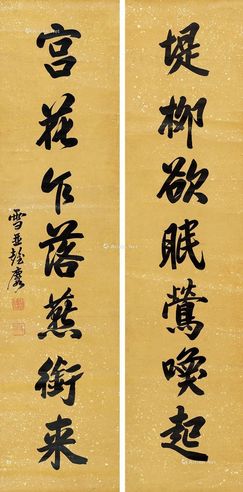 堤柳欲眠鶯喚起
宮花乍落燕銜来
雪亚彭賡